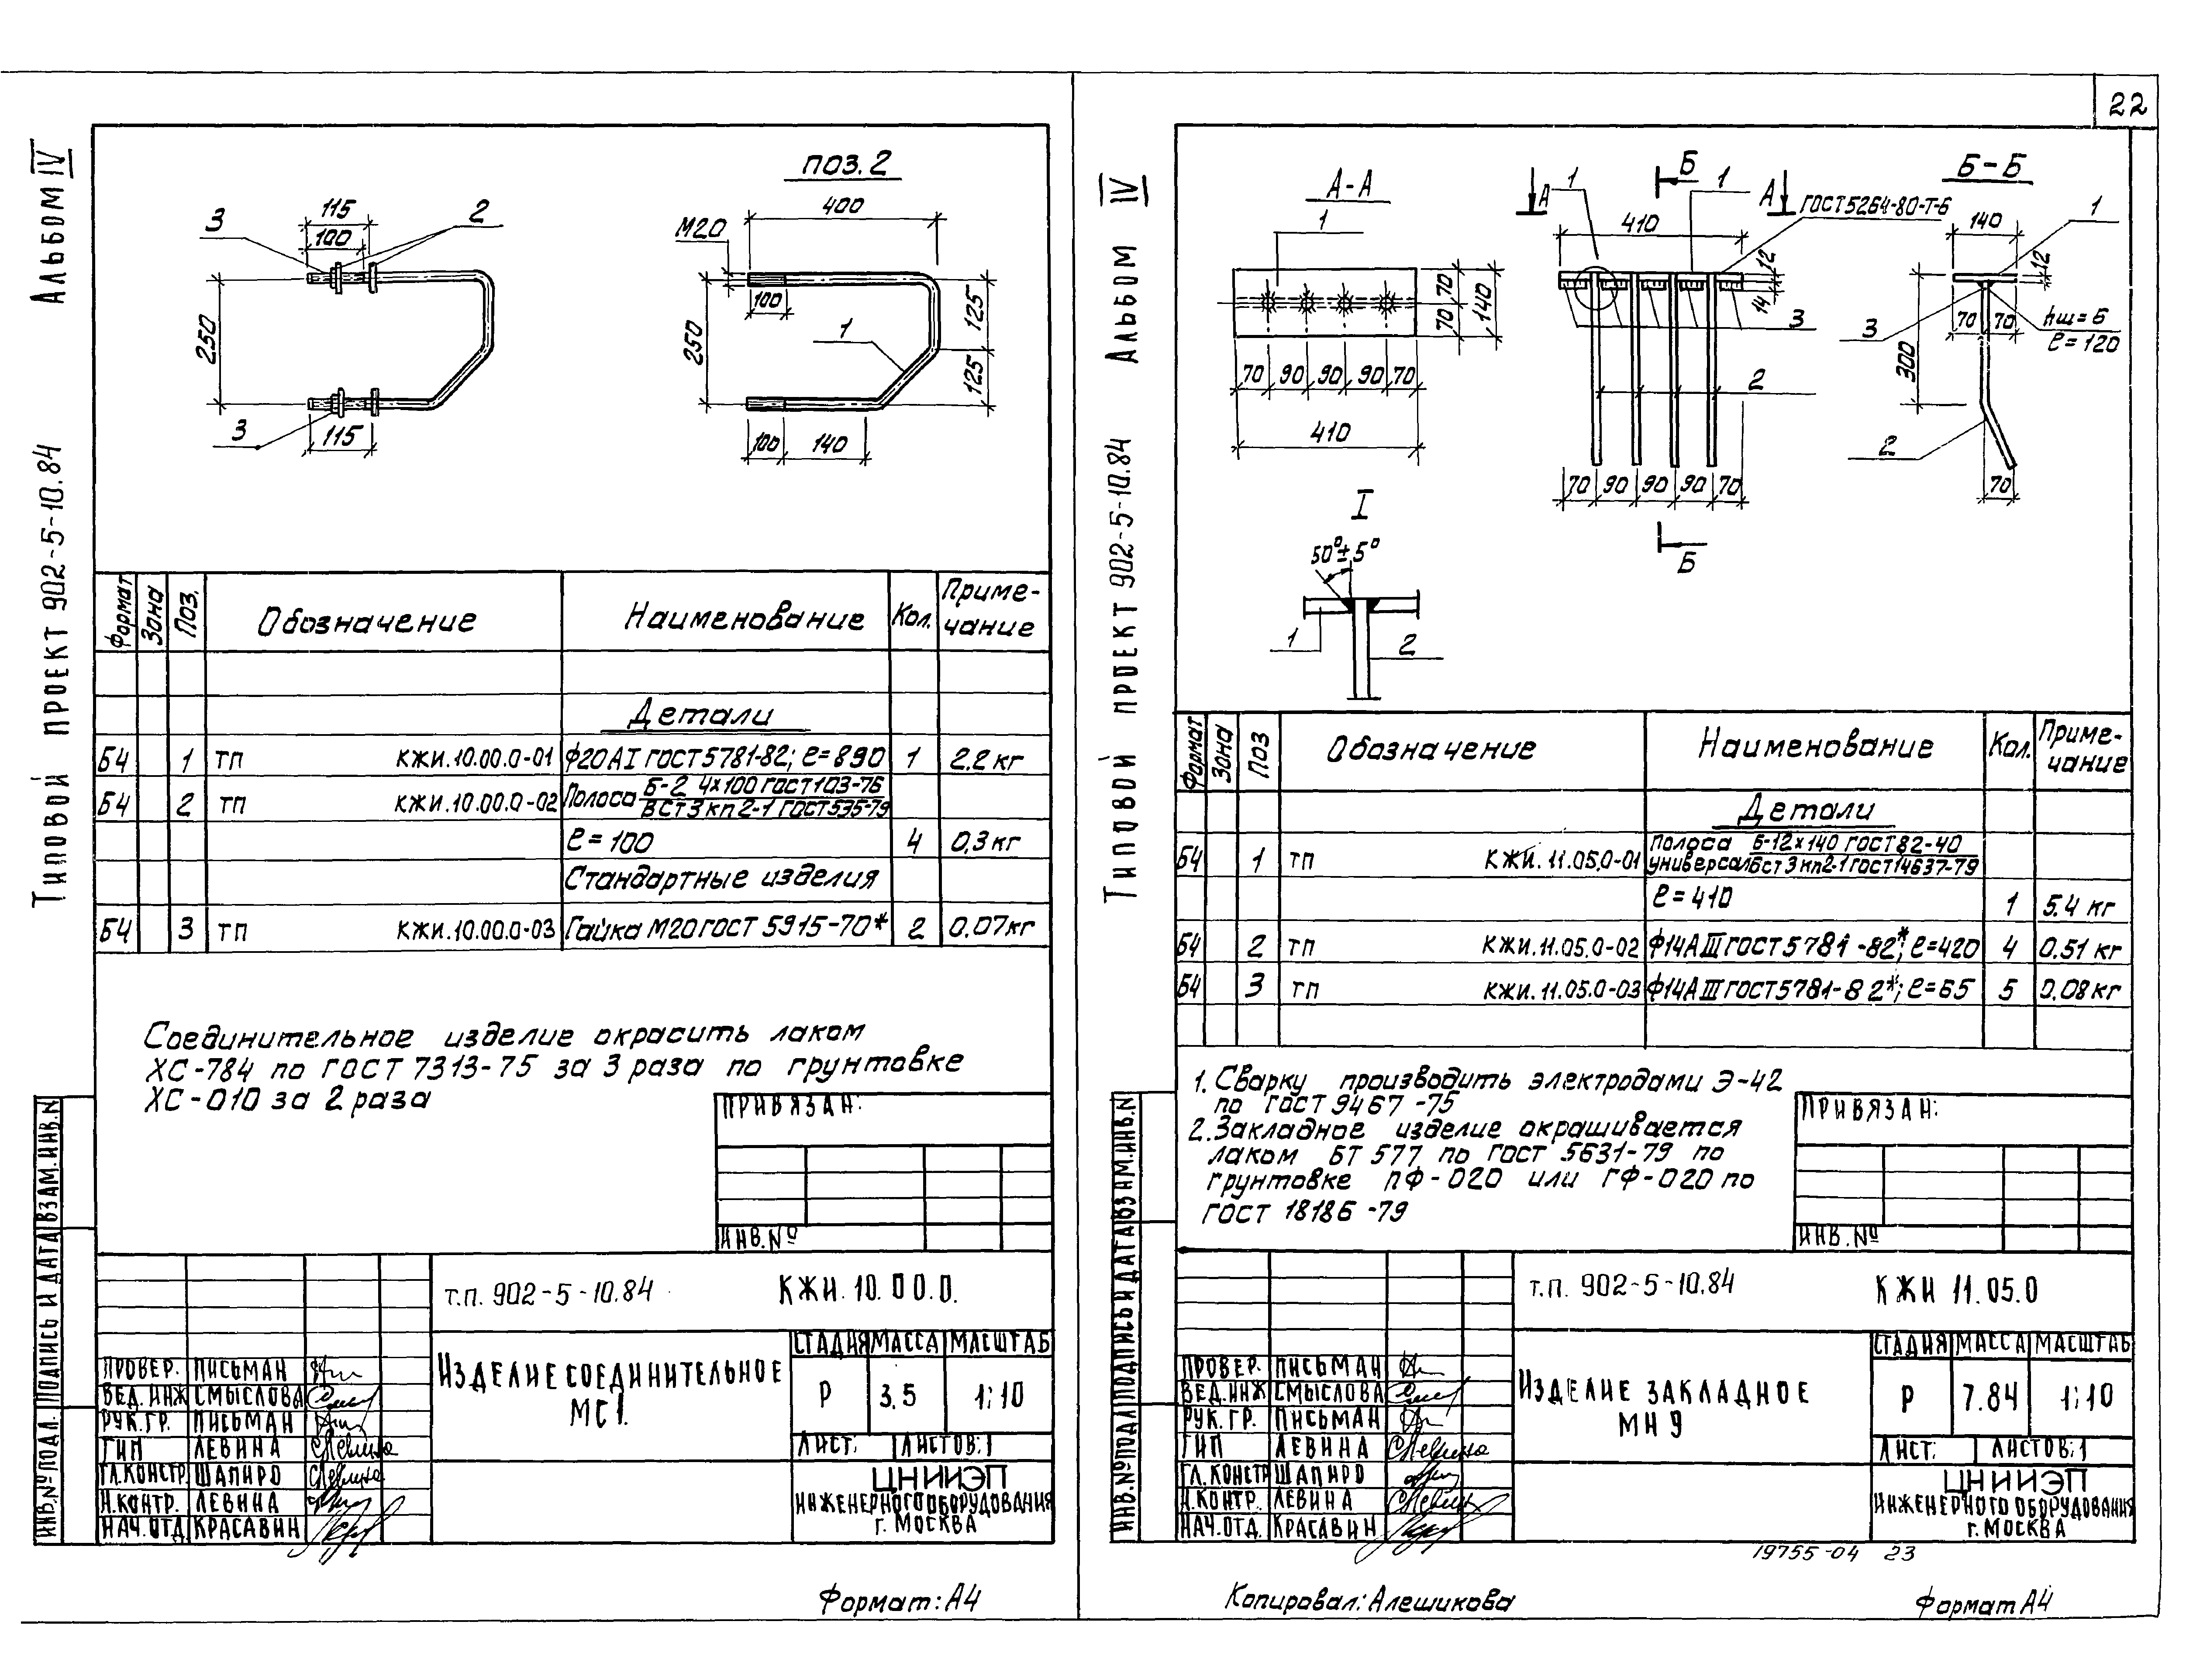 22
Альбом IV
Типовой проект 902-5-10.84
ПОЗ.2
3
115
100
2
250
3
115
М20
400
100
250
1
125
125
100
140
Формат
Зона
Поз.
Обозначение
Наименование
Кол.
Приме-
чание
Детали
Б4 1 ТП КЖИ.10.00.0-01 ф20АI ГОСТ 5781-82; ℓ=890 1 2.2 кг
Б4 2 ТП КЖИ.10.00.0-02 Полоса Б-2 4х100 ГОСТ 103-76
ВСт3кп2-1 ГОСТ 535-79
ℓ=100 4 0,3 кг
Стандартные изделия
Б4 3 ТП КЖИ.10.00.0-03 Гайка М20 ГОСТ 5915-70* 2 0,07кг
Соединительное изделие окрасить лаком
ХС-784 по ГОСТ 7313-75 за 3 раза по грунтовке
ХС-010 за 2 раза
ПРИВЯЗАН:
ИНВ.№
Т.П. 902-5-10.84
КЖИ.10.00.0.
ИЗДЕЛИЕ СОЕДИНИТЕЛЬНОЕ
МС1.
СТАДИЯ МАССА МАСШТАБ
Р 3,5 1:10
ЛИСТ: ЛИСТОВ:1
ЦНИИЭП
ИНЖЕНЕРНОГО ОБОРУДОВАНИЯ
г. МОСКВА
ПРОВЕР. ПИСЬМАН
ВЕД.ИНЖ СМЫСЛОВА
РУК.ГР. ПИСЬМАН
ГИП ЛЕВИНА
ГЛ.КОНСТР. ШАПИРО
Н.КОНТР. ЛЕВИНА
НАЧ.ОТД КРАСАВИН
ИНВ.№ПОДЛ. ПОДПИСЬ И ДАТА ВЗАМ.ИНВ.N
Формат: А4
Альбом IV
Типовой проект 902-5-10.84
А-А
1
70
70
140
70 90 90 90 70
410
А
1
Б
1
А
ГОСТ 5264-80-Т-6
410
12
14
3
2
70 90 90 90 70
Б
Б-Б
140
1
12
300
3
70 70
hш=6
ℓ=120
2
70
I
50°±5°
1
2
Формат
Зона
Поз
Обозначение
Наименование
Кол.
Приме-
чание
Детали
Б4 1 ТП КЖИ.11.05.0-01 Полоса Б-12х140 ГОСТ 82-40
универсал Вст3кп2-1 ГОСТ 14637-79
ℓ=410 1 5.4 кг
Б4 2 ТП КЖИ.11.05.0-02 ф14АIII ГОСТ 5781-82*; ℓ=420 4 0.51 кг
Б4 3 ТП КЖИ.11.05.0-03 ф14АIII ГОСТ 5781-82*; ℓ=65 5 0,08кг
1. Сварку производить электродами Э-42
по ГОСТ 9467-75
2. Закладное изделие окрашивается
лаком БТ 577 по ГОСТ 5631-79 по
грунтовке ПФ-020 или ГФ-020 по
ГОСТ 18186-79
ПРИВЯЗАН:
ИНВ.№
Т.П. 902-5-10.84
КЖИ 11.05.0
ИЗДЕЛИЕ ЗАКЛАДНОЕ
МН 9
СТАДИЯ МАССА МАСШТАБ
Р 7.84 1:10
ЛИСТ: ЛИСТОВ:1
ЦНИИЭП
ИНЖЕНЕРНОГО ОБОРУДОВАНИЯ
г. МОСКВА
ПРОВЕР. ПИСЬМАН
ВЕД.ИНЖ СМЫСЛОВА
РУК.ГР. ПИСЬМАН
ГИП ЛЕВИНА
ГЛ.КОНСТР ШАПИРО
Н.КОНТР. ЛЕВИНА
НАЧ.ОТД. КРАСАВИН
ИНВ.№ПОДЛ ПОДПИСЬ И ДАТА ВЗАМ.ИНВ.N
19755-04 23
Копировал: Алешикова
Формат А4